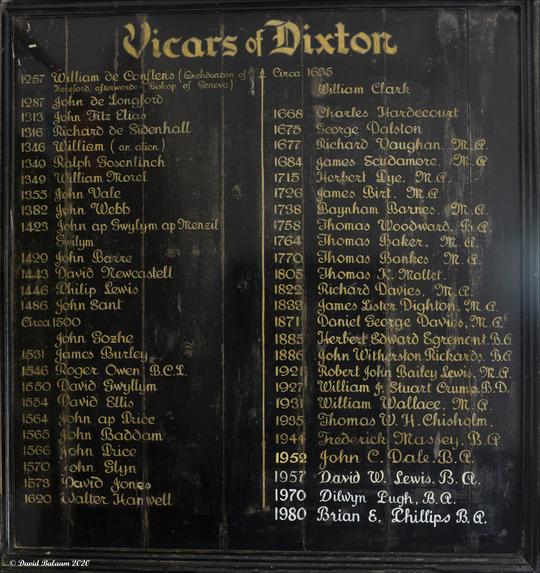 Vicars of Dixton
1257 William de Conflens (Archdeacon of
Hereford, afterwards Bishop of Geneva)
1287 John de Longford
1313 John Fitz Elias
1316 Richard de Sidenhall
1346 William (an alien.)
1349 Ralph Gosenlinch
1349 William Morel
1355 John Vale
1382 John Webb
1423 John ap Gwylym ap Menzil
Gwilym
1429 John Barre
1443 David Newcastell
1446 Philip Lewis
1486 John Sant
Circa 1500
John Gozhe
1531 James Burley
1546 Roger Owen B.C.L.
1550 David Gwyllym
1554 David Ellis
1564 John ap Price
1565 John Baddam
1566 John Price
1570 John Glyn
1573 David Jones
1620 Walter Hanwell
Circa 1635
William Clark
1668 Charles Hardecourt
1675 George Dalston
1677 Richard Vaughan, M.A.
1684 James Scudamore, M.A
1715 Herbert Pye, M.A.
1726 James Birt, M.A
1738 Baynham Barnes, M.A.
1758 Thomas Woodward, B.A
1764 Thomas Baker, M.A.
1770 Thomas Bankes M.A.
1805 Thomas K. Mallet.
1822 Richard Davies, M.A.
1833 James Lister Dighton, M.A.
1871 Daniel George Davies, M.A.
1885 Herbert Edward Egremont. B.A
1886 John Witherston Rickards, B.A
1921 Robert John Bailey Lewis, M.A.
1927 William J. Stuart Crump, B.D.
1931 William Wallace, M.A.
1935 Thomas W. H. Chisholm.
1944 Frederick Massey, B.A.
1952 John C. Dale, B.A.
1957 David W. Lewis, B.A.
1970 Dilwyn Pugh, B.A.
1980 Brian E. Phillips B.A.
© David Balaam 2020